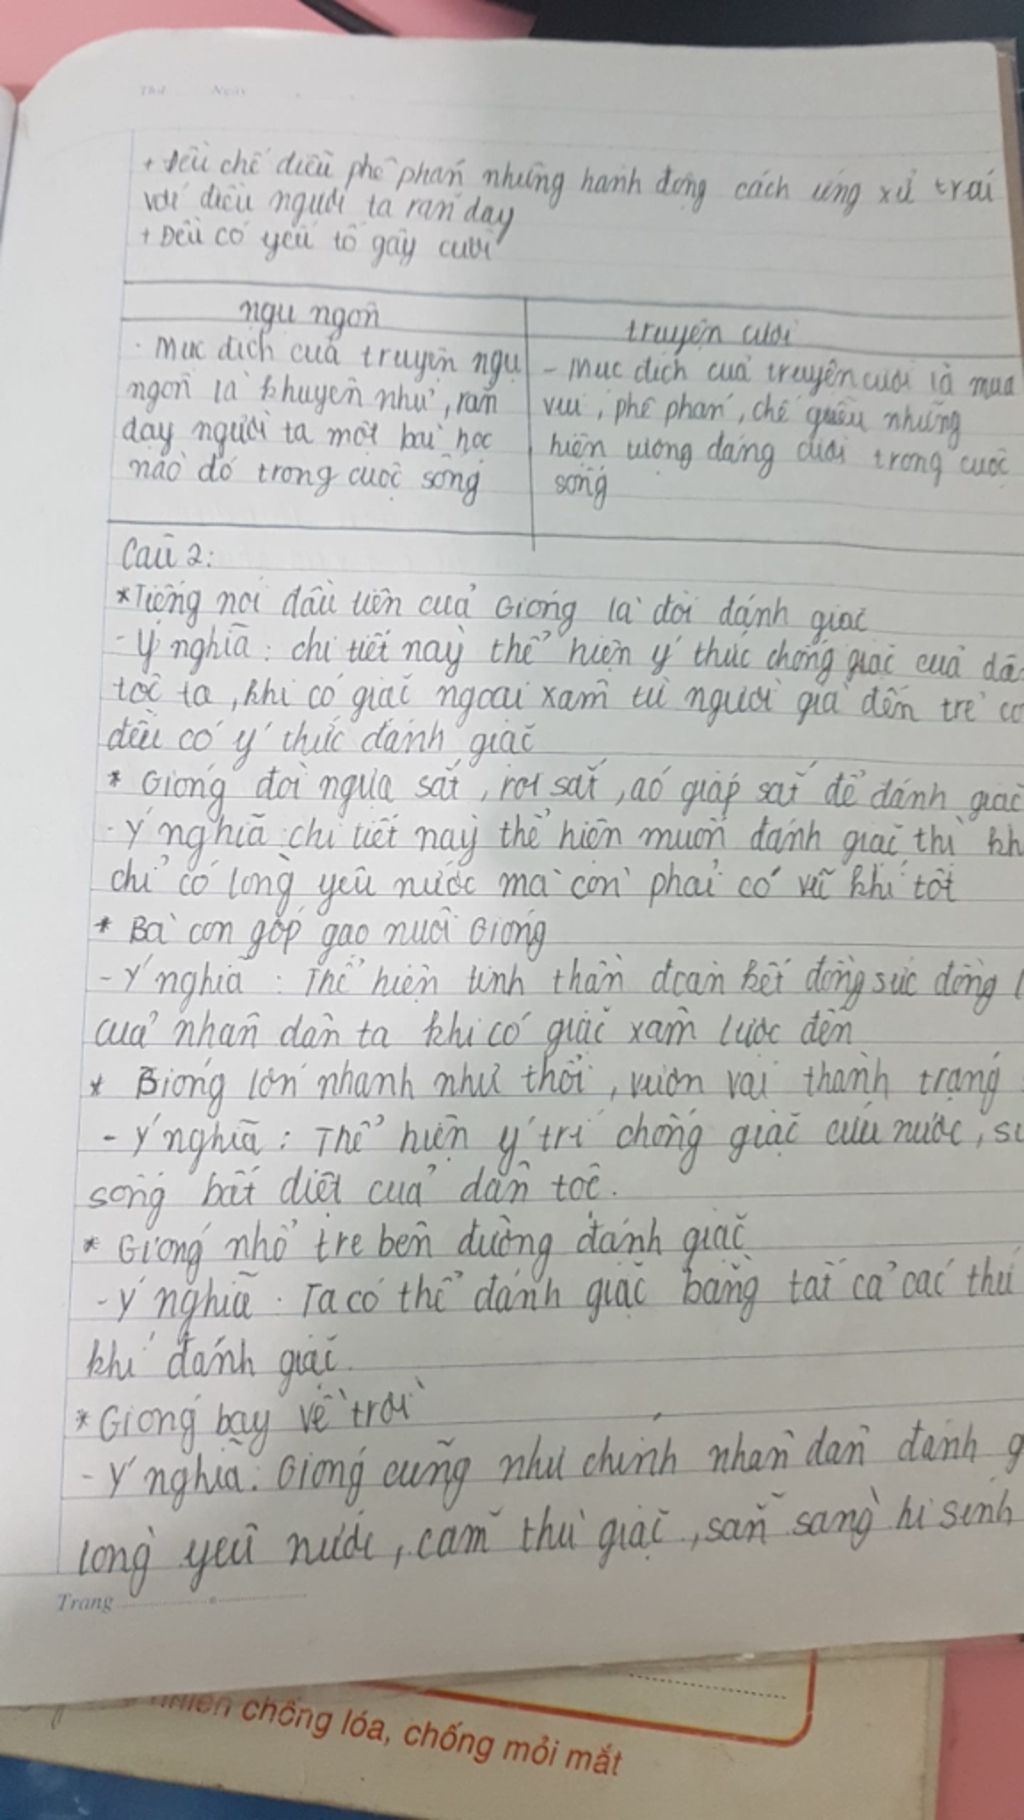 Thứ Ngày
+ Đều chế diễu phê phán những hành động cách ứng xử trái
với điều người ta răn dạy
+ Đều có yếu tố gây cười
ngụ ngôn
truyện cười
- Mục đích của truyện ngụ
ngôn là khuyên nhủ, răn
dạy người ta một bài học
nào đó trong cuộc sống
- Mục đích của truyện cười là mua
vui, phê phán, chế giễu những
hiện tượng đáng cười trong cuộc
sống
Câu 2:
* Tiếng nói đầu tiên của Gióng là đòi đánh giặc
- Ý nghĩa: chi tiết này thể hiện ý thức chống giặc của dâ
tộc ta, khi có giặc ngoại xâm từ người già đến trẻ co
đều có ý thức đánh giặc
* Gióng đòi ngựa sắt, roi sắt, áo giáp sắt để đánh giặc
- Ý nghĩa: chi tiết này thể hiện muốn đánh giặc thì kh
chỉ có lòng yêu nước mà còn phải có vũ khí tốt
* Bà con góp gạo nuôi Gióng
- Ý nghĩa: Thể hiện tinh thần đoàn kết đồng sức đồng l
của nhân dân ta khi có giặc xâm lược đến
* Gióng lớn nhanh như thổi, vươn vai thành tráng
- Ý nghĩa: Thể hiện ý trí chống giặc cứu nước, sứ
sống bất diệt của dân tộc.
* Gióng nhổ tre bên đường đánh giặc
- Ý nghĩa: Ta có thể đánh giặc bằng tất cả các thứ
khí đánh giặc.
* Gióng bay về trời
- Ý nghĩa: Gióng cũng như chính nhân dân đánh g
lòng yêu nước, căm thù giặc, sẵn sàng hi sinh
Trang
nhiên chống lóa, chống mỏi mắt